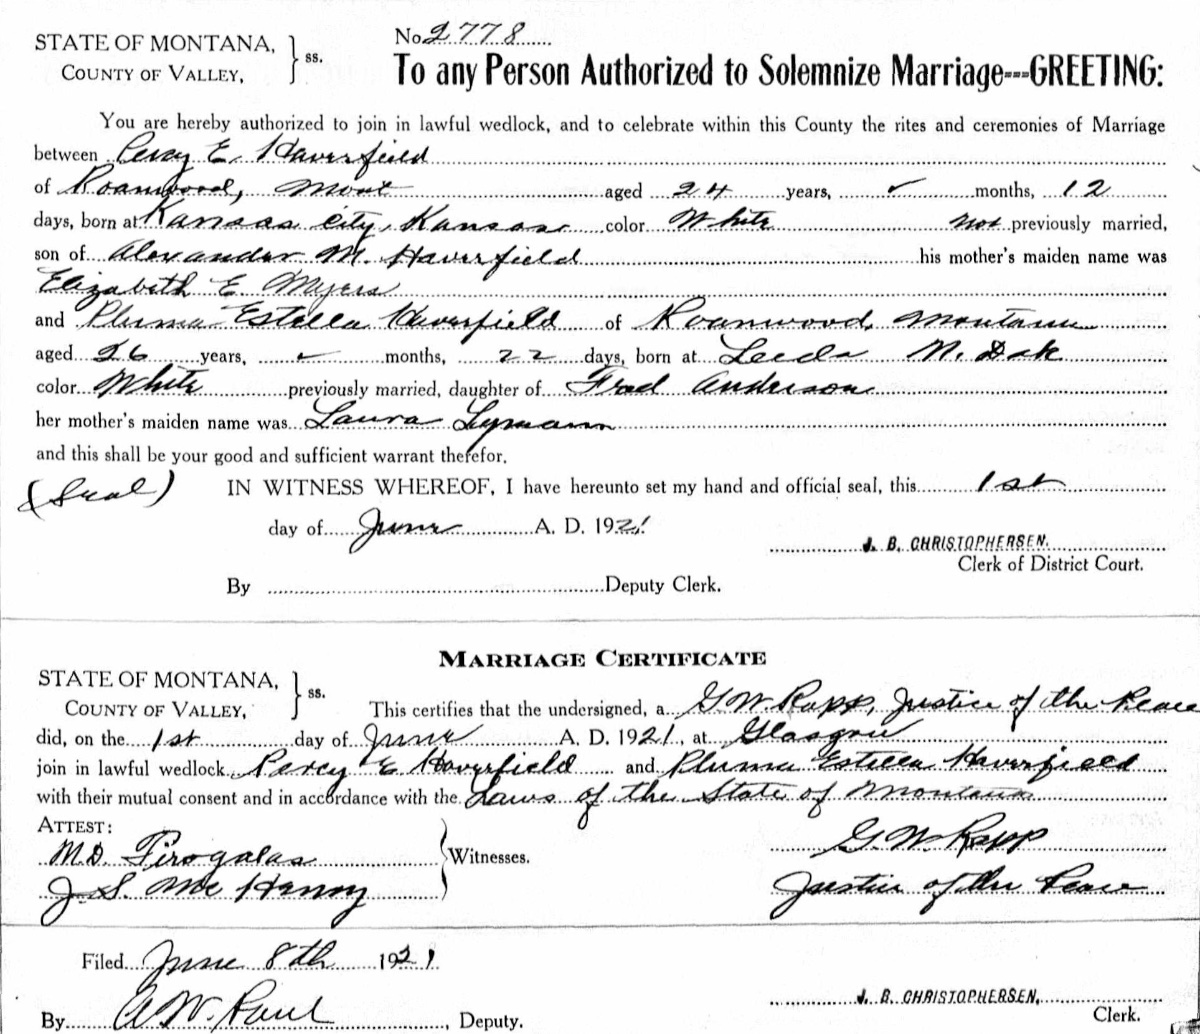 STATE OF MONTANA, } ss. No. 2778
COUNTY OF VALLEY,
To any Person Authorized to Solemnize Marriage---GREETING:
You are hereby authorized to join in lawful wedlock, and to celebrate within this County the rites and ceremonies of Marriage
between Percy E. Haverfield
of Roanwood, Mont aged 24 years, ✓ months, 12
days, born at Kansas City, Kansas color White not previously married,
son of Alexander M. Haverfield his mother's maiden name was
Elizabeth E Myers
and Pluma Estella Haverfield of Roanwood, Montana
aged 26 years, ✓ months, 22 days, born at Leeds N. Dak
color White previously married, daughter of Fred Anderson
her mother's maiden name was Laura Lymann
and this shall be your good and sufficient warrant therefor.
(Seal) IN WITNESS WHEREOF, I have hereunto set my hand and official seal, this 1st
day of June A. D. 1921
J. B. CHRISTOPHERSEN.
Clerk of District Court.
By Deputy Clerk.
MARRIAGE CERTIFICATE
STATE OF MONTANA, } ss.
COUNTY OF VALLEY,
This certifies that the undersigned, a G. W. Rapp, Justice of the Peace
did, on the 1st day of June A. D. 1921, at Glasgow
join in lawful wedlock Percy E. Haverfield and Pluma Estella Haverfield
with their mutual consent and in accordance with the Laws of the State of Montana
ATTEST: G. W. Rapp
M. D. } Witnesses.
J. S. Mc Henry Justice of the Peace
Filed June 8th 1921
J. B. CHRISTOPHERSEN,
Clerk.
By A W. Paul, Deputy.